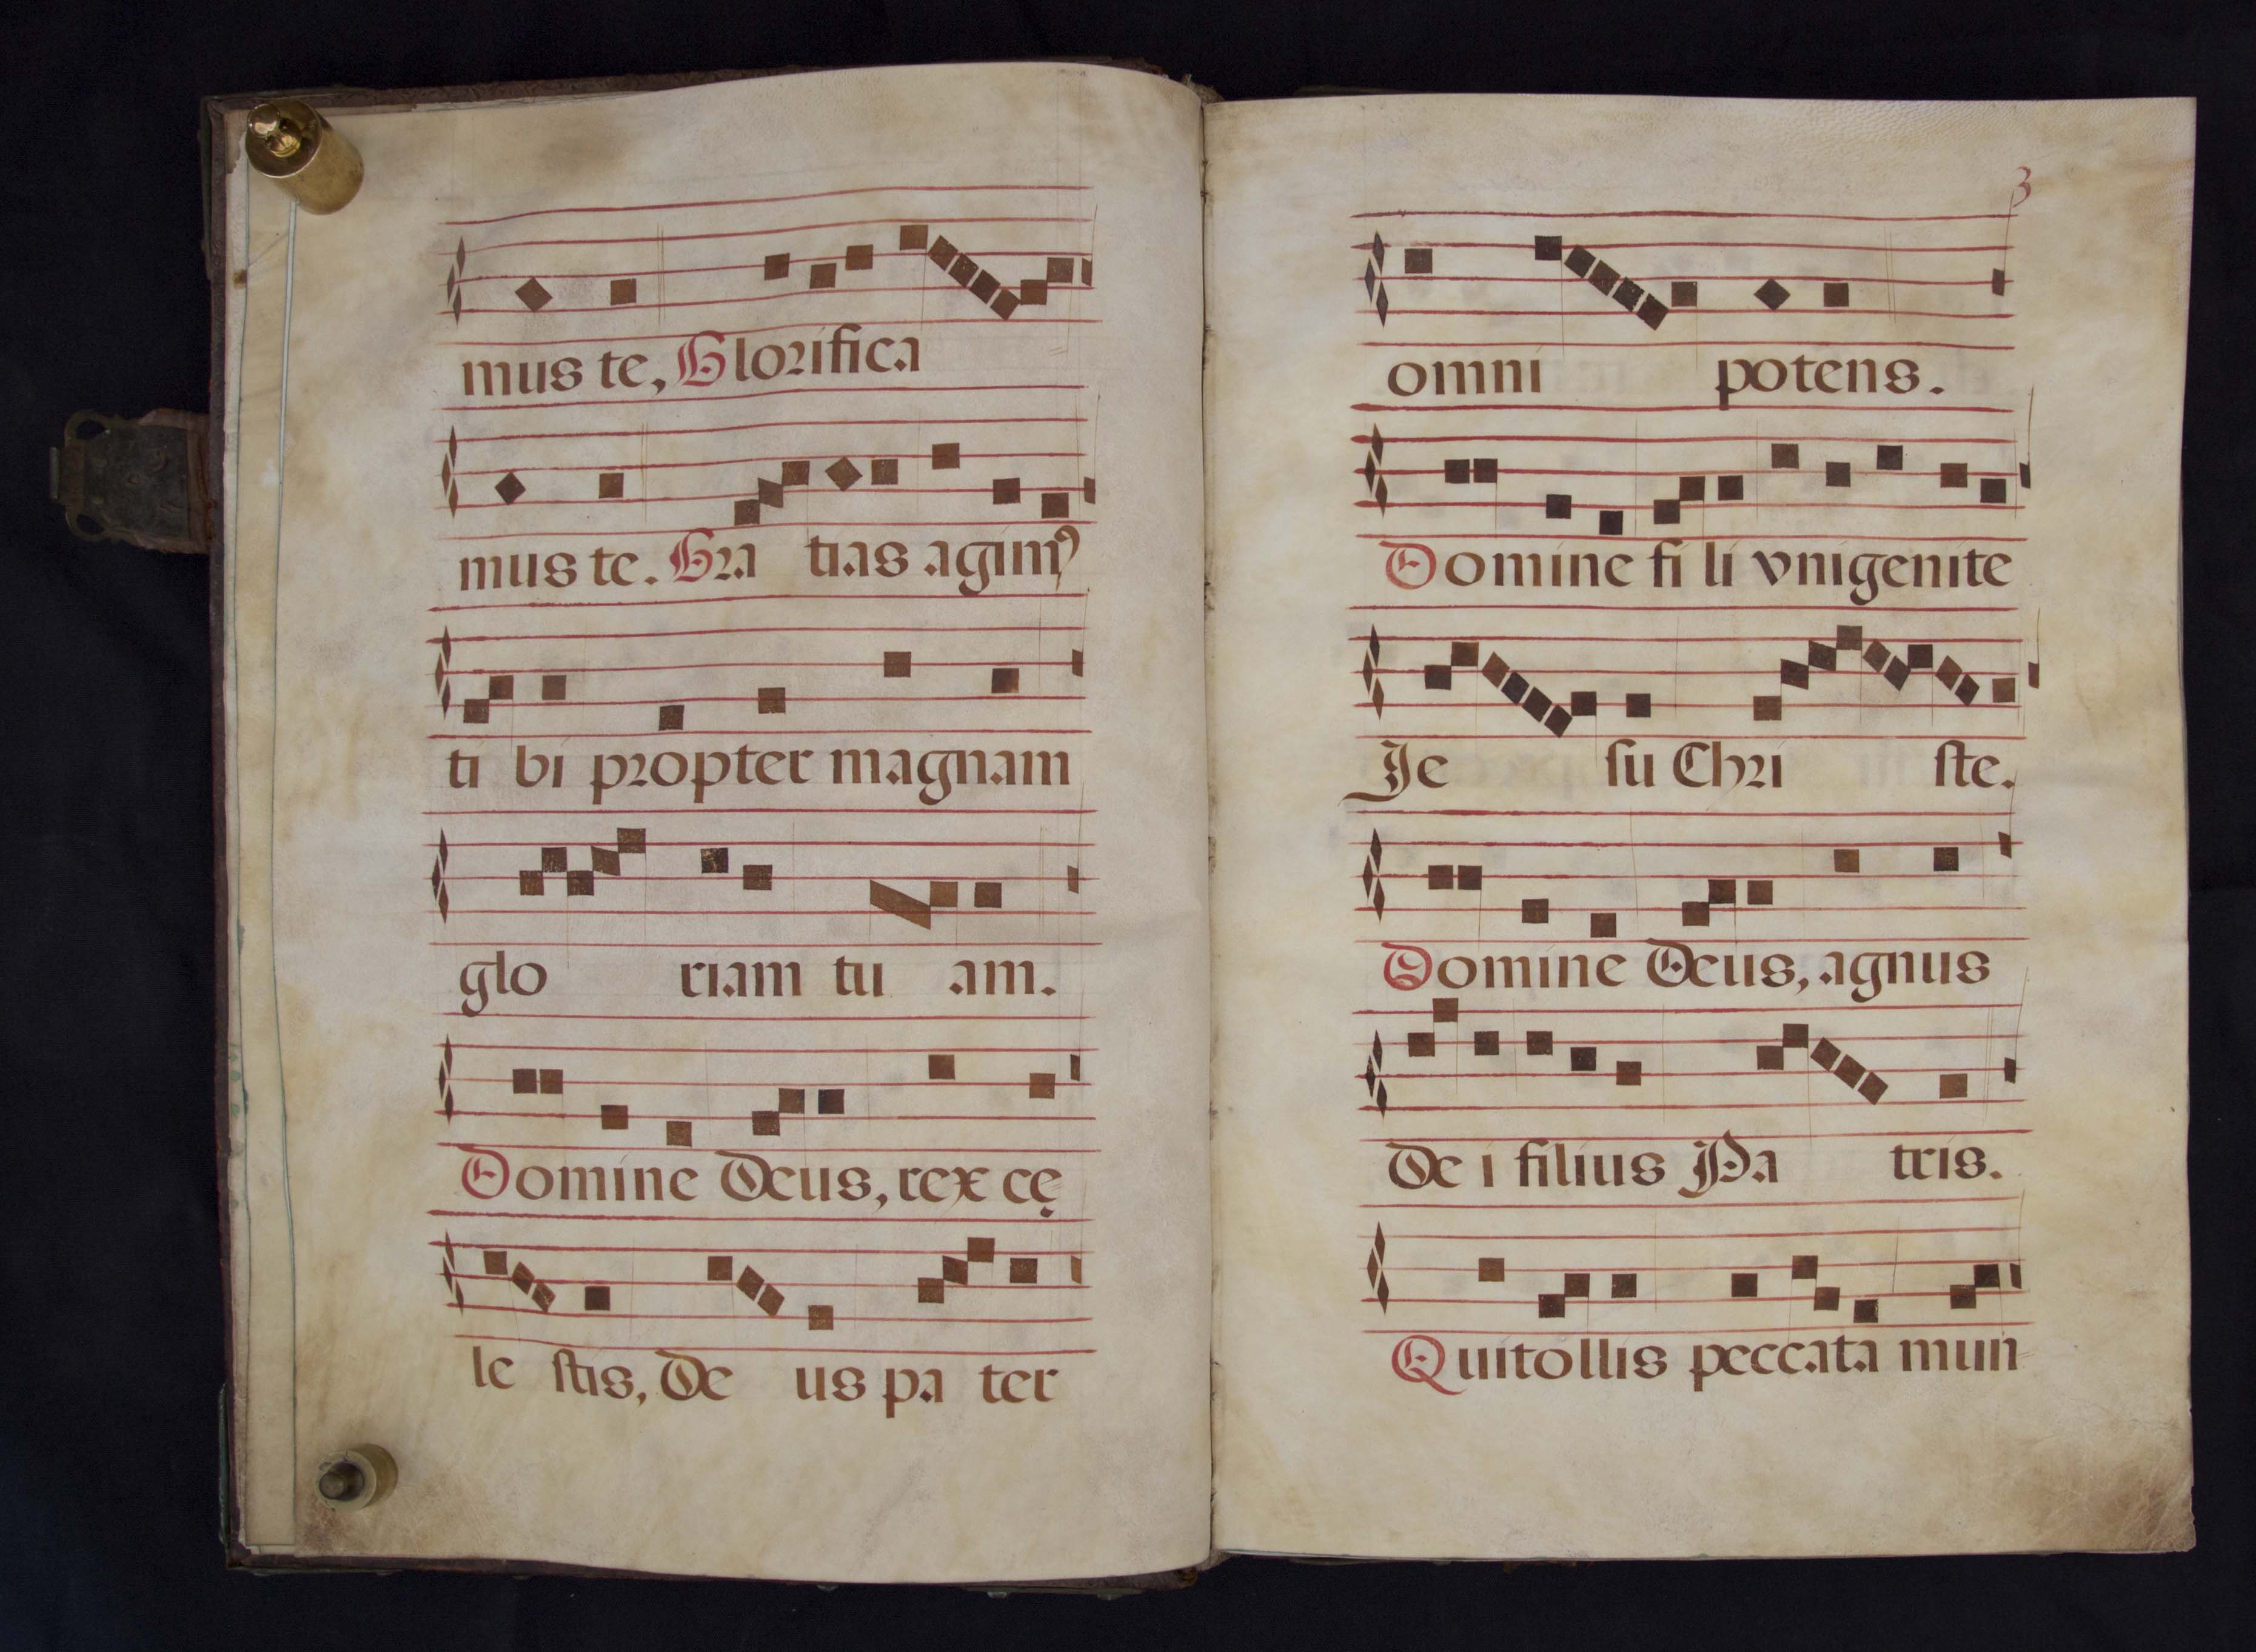 mus te, Glorifica
mus te. Gra tias agimꝰ
ti bi propter magnam
glo riam tu am.
Domine Deus, rex cę
le ſtis, De us pa ter
3
omni potens.
Domine fi li vnigenite
Je ſu Chri ſte.
Domine Deus, agnus
De i filius Pa tris.
Quitollis peccata mun